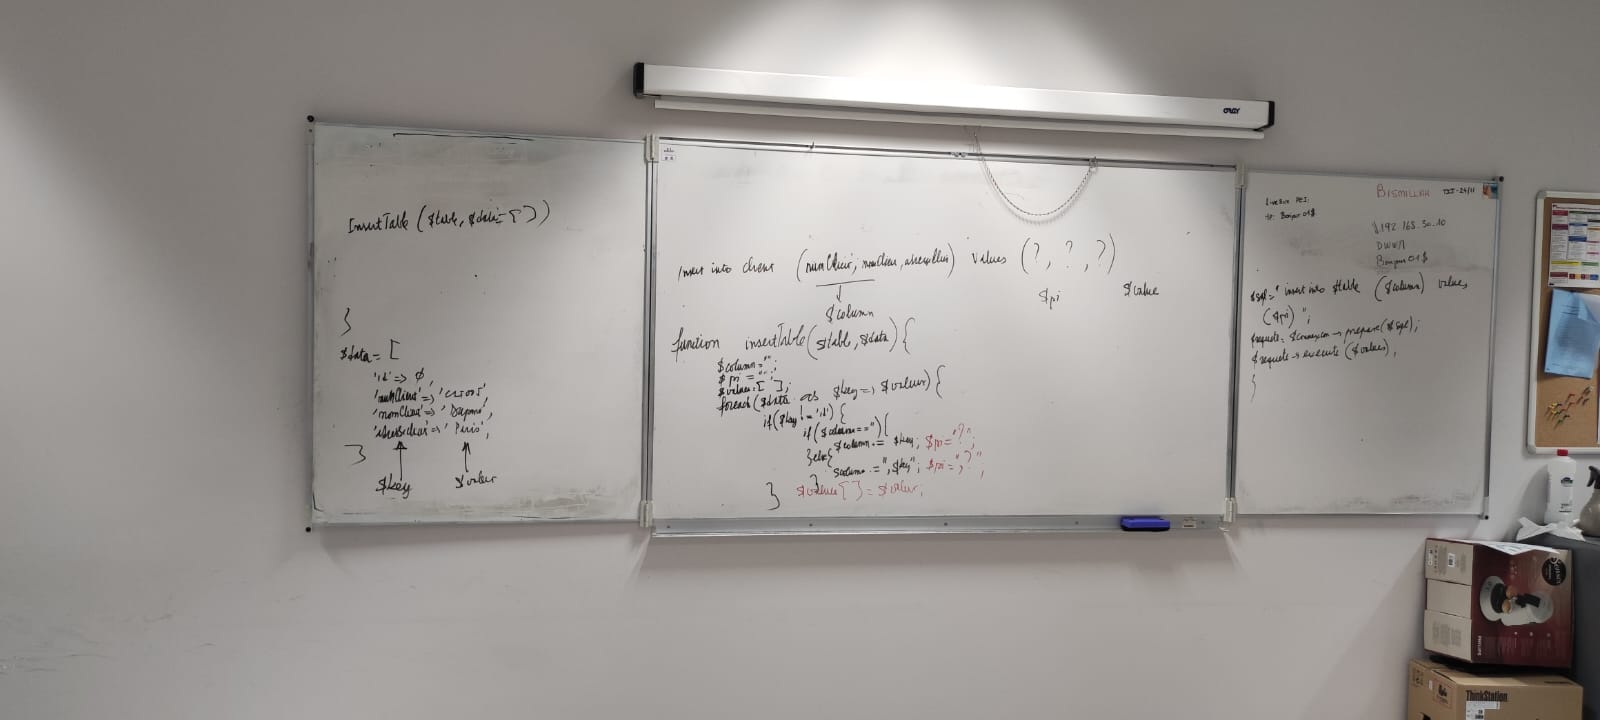 InsertTable ($table, $data=[])
}
$data = [
'id' => 0,
'numClient' =>
'nomClient' => 'Dupond',
'adresseclient' => 'Paris',
]
$key $value
ORAY
Insert into client (numClient, nomClient, adresseClient) values (?, ?, ?)
$column
$pi $value
function insertTable($table, $data) {
$column = "";
$pi = "";
$values = [];
foreach ($data as $key => $value) {
if ($key != 'id') {
if ($column == '') {
$column .= $key; $pi = "?";
} else {
$column .= ",$key"; $pi = ",?";
}
} $values[] = $value;
BISMILLAH
24/11
LiveBox
Bonjour01$
192.168.30.10
DWWM
Bonjour01$
$sql = "insert into $table ($column) values
($pi)";
$requete = $connexion -> prepare($sql);
$requete -> execute($values);
}
PHILIPS
ThinkStation